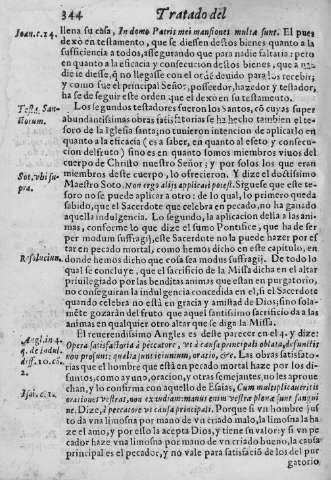 344 Tratado del
Joan.c.14. llena su casa, In domo Patris mei mansiones multæ sunt. El pues
dexò en testamento, que se diessen destos bienes quanto a la
sufficiencia a todos, assegurando que para nadie faltaria; pero
en quanto a la eficacia y consecucion destos bienes, que a nadie
se diesse, q̃ no llegasse con el ordẽ deuido para los recebir;
y como fue el principal Señor, posseedor, hazedor y testador,
ha se de seguir este orden que el dexò en su testamento.
Testa. Sanctorum. Los segundos testadores fueron los Santos, cõ cuyas super
abundantissimas obras satisfatorias se ha hecho tambien el tesoro
de la Iglesia santa; no tuuieron intencion de aplicarlo en
quanto a la eficacia (es a saber, en quanto al efeto y consecucion
del fruto) sino es en quanto somos miembros viuos del
cuerpo de Christo nuestro Señor; y por solos los que eran
Sot. vbi supra. miembros deste cuerpo, lo ofrecieron. Y dize el doctissimo
Maestro Soto. Non ergo aliis applicari potest. Siguese que este tesoro
no se puede aplicar a otro: de lo qual, lo primero queda
sabido, que el Sacerdote que celebra en pecado, no ha ganado
aquella indulgencia. Lo segundo, la aplicacion della a las animas,
conforme lo que dize el sumo Pontifice, que ha de ser
per modum suffragij, este Sacerdote no la puede hazer por estar
en pecado mortal, como hemos dicho en este capitulo, en
Resolucion. donde hemos dicho que cosa sea modus suffragij. De todo lo
qual se concluye, que el sacrificio de la Missa dicha en el altar
priuilegiado por las benditas animas que estan en purgatorio,
no conseguiran la indulgencia concedida en el, si el Sacerdote
quando celebra no està en gracia y amistad de Dios; sino solamẽte
gozaràn del fruto que aquel santissimo sacrificio da a las
animas en qualquier otro altar que se diga la Missa.
Angl. in 4. q. de indul. El reuerendissimo Angles es deste parecer en el 4. y dize:
Opera satisfactoria à peccatore, vt à causa principali oblata, defunctis
non prosunt; qualia sunt ieiunium, oratio, &c. Las obras satisfatorias
2. que el hombre que està en pecado mortal haze por los difuntos,
como ayuno, oracion, y otras semejantes, no les aprouechan,
y lo confirma con aquello de Esaias, Cum multiplicaueritis
Isai. c.1. orationes vestras, non exaudiam: manus enim vestræ plenæ sunt sanguine.
Dize, à peccatore vt causa principali. Porque si vn hombre justo
da vna limosna por mano de vn criado malo, la limosna la haze
el amo, y por esso la acepta Dios, y tiene su valor; y si vn pecador
haze vna limosna por mano de vn criado bueno, la causa
principal es el pecador, y no vale para satisfació de los del pur
gatorio